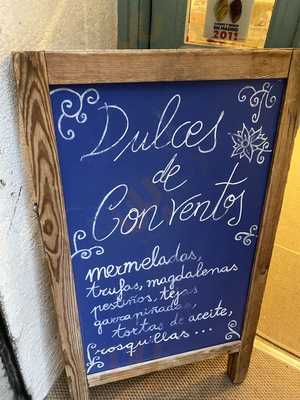 Dulces
de
Conventos
mermeladas,
trufas, magdalenas
pestiños, tejas
garrapiñadas,
tortas de aceite,
rosquillas...